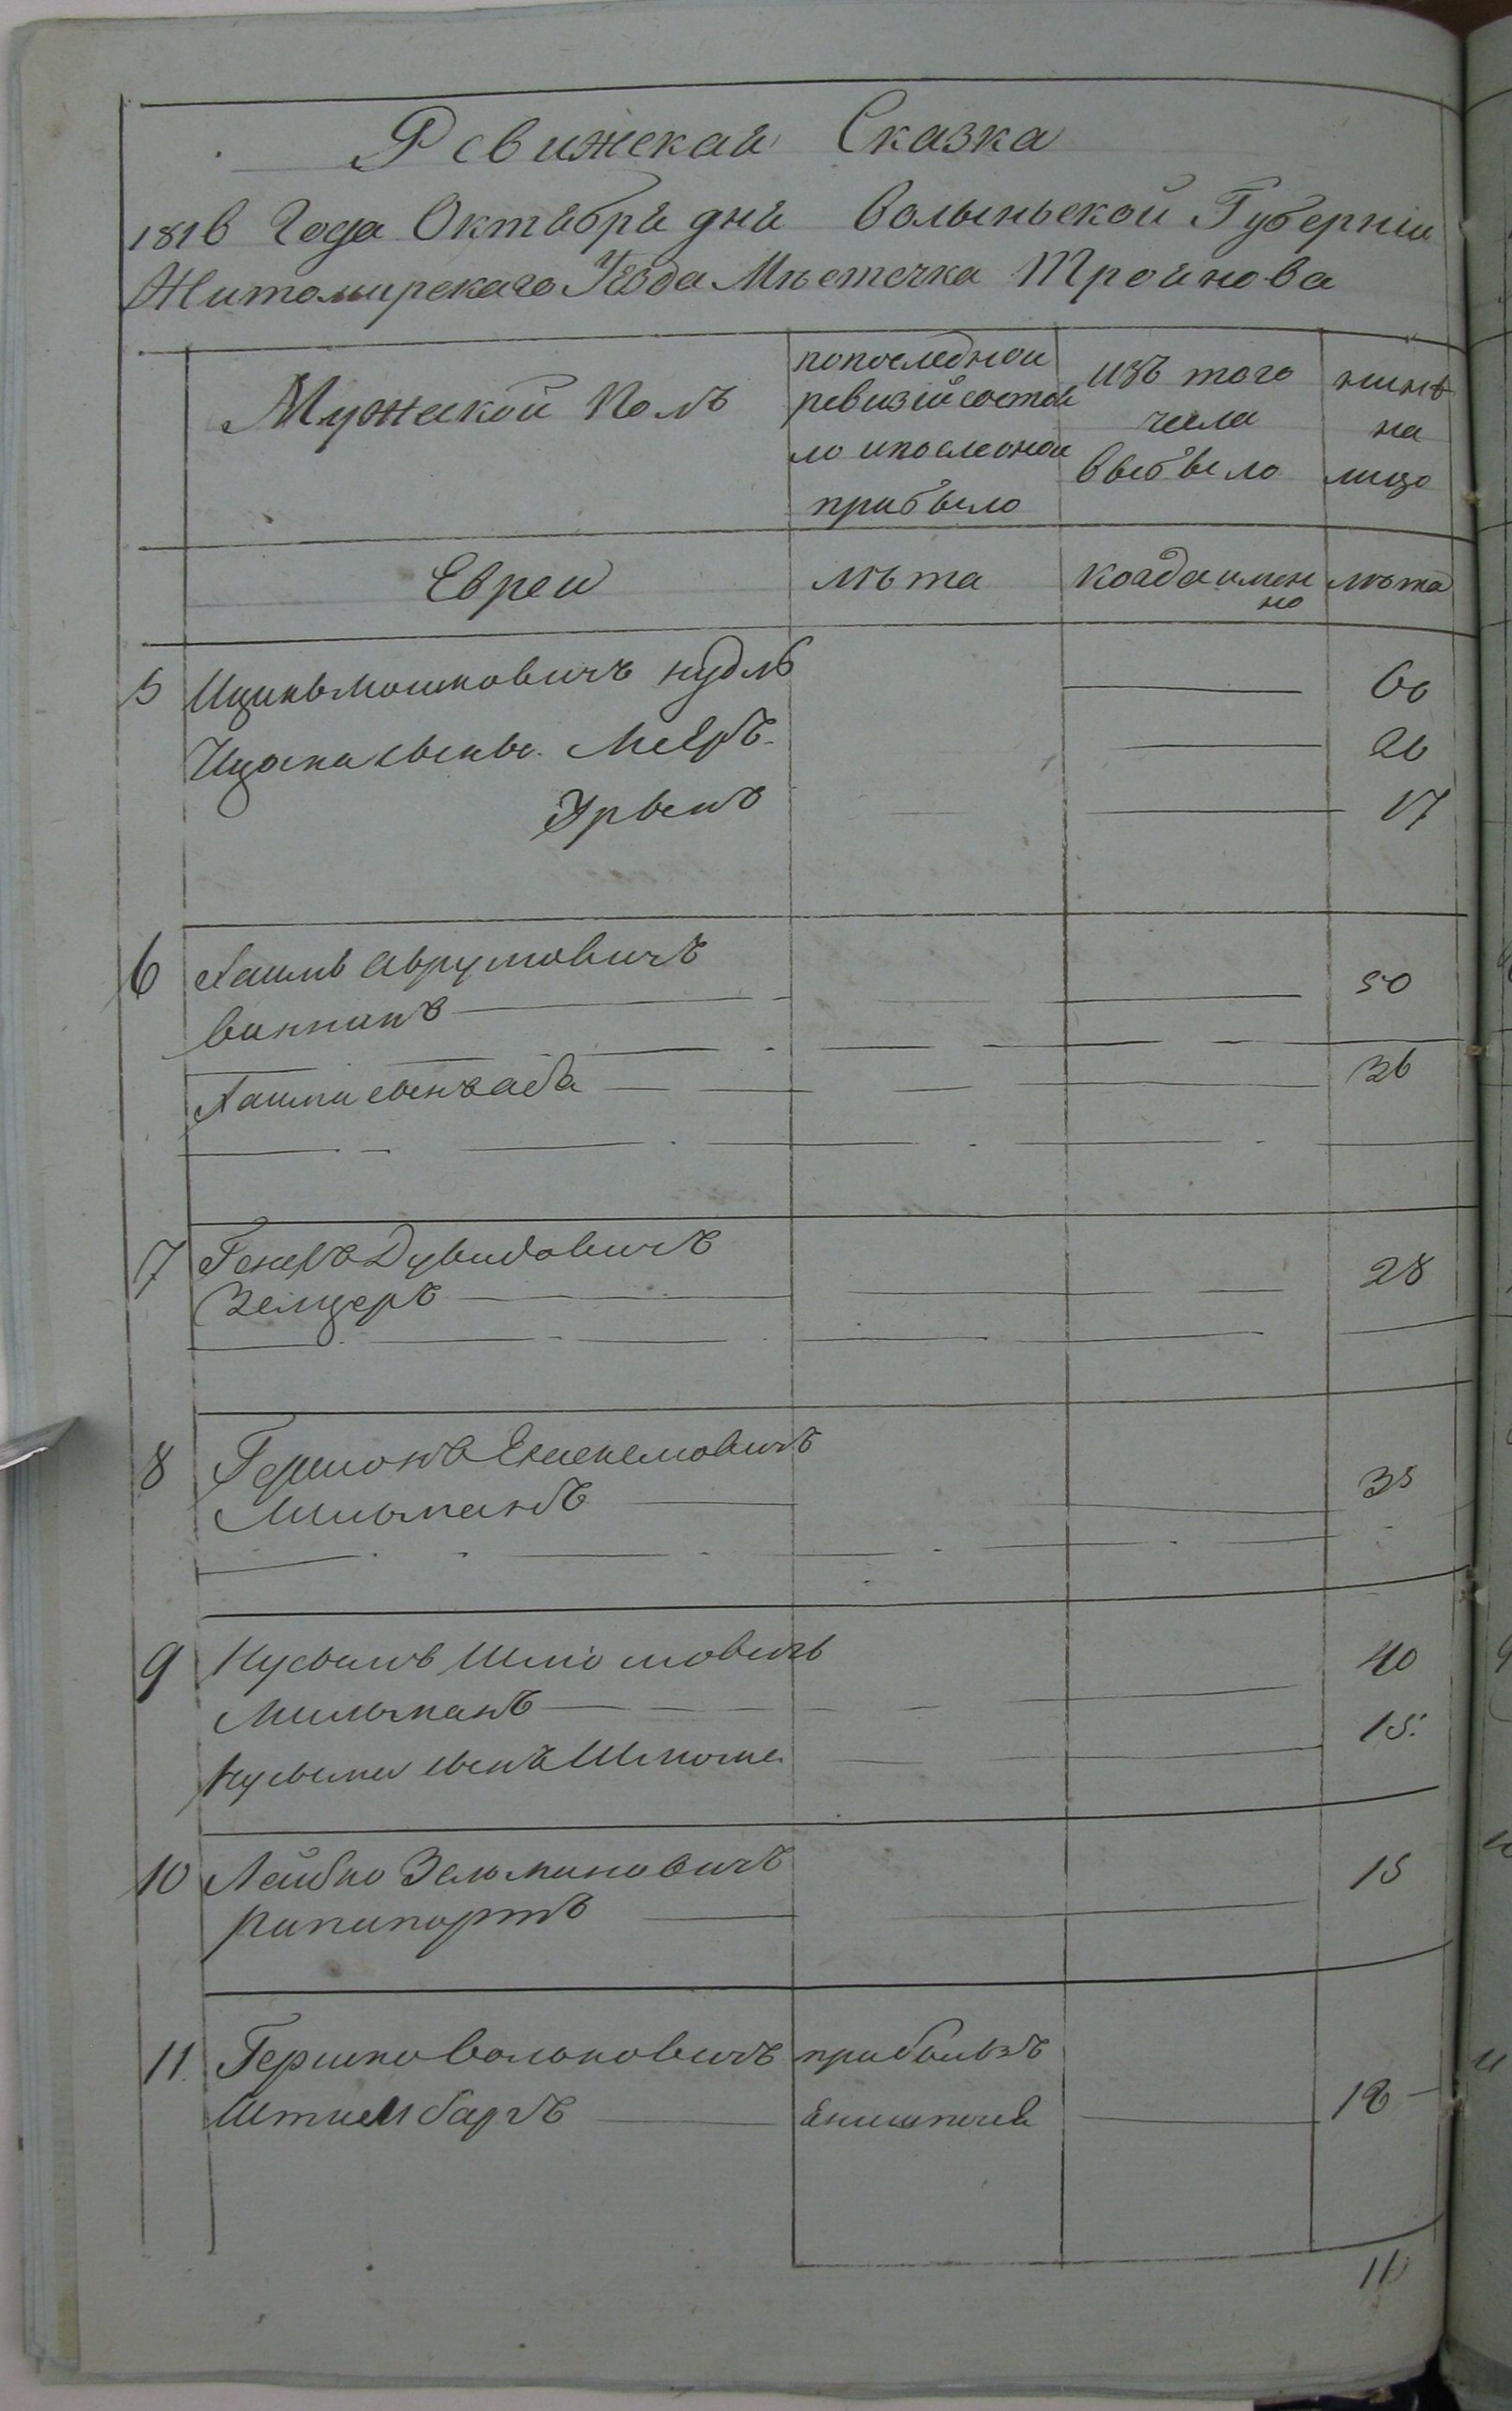 Ревижская Сказка
1816 Года Октября дня Волыньской Губерніи
Житомирскаго Уезда Мѣстечка Троянова
Мужеской Полъ
попоследнои ревизіи состоя ло ипослеонои прибыло
изъ того числа выбыло
нинѣ на лицо
Евреи
лѣта
когда имен но
лѣта
5 Ицикъ Мошковичъ нудль 60
Ицка сынъ Мееръ 26
Урынъ 17
6 Хашкѣ Аврумовичъ 50
винникъ
Хашки сынъ аба 36
7 Генехъ Дувидовичъ
Зелцеръ 28
8 Гершонъ
Мильманъ 35
9 Нусынъ Шмомовичъ 40
Мильманъ
Нусына сынъ Шмома 15
10 Лейбко Зельмановичъ 15
Рапипортъ
11. Гершко Вольковичъ прибылъ
18
11